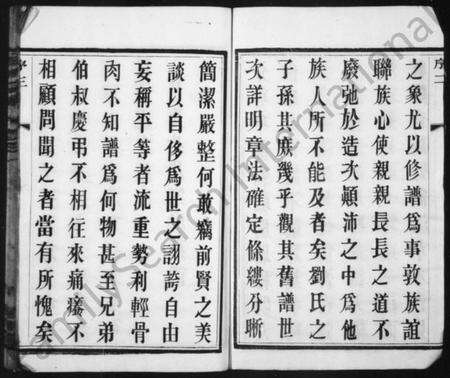 序二
之衆尤以修譜爲事敦族誼
聯族心使親親長長之道不
廢弛於造次顚沛之中爲他
族人所不能及者矣劉氏之
子孫其庶幾乎觀其舊譜世
次詳明章法確定條縷分晰
簡潔嚴整何敢竊前賢之美
談以自侈爲世之詡誇自由
妄稱平等者流重勢利輕骨
肉不知譜爲何物甚至兄弟
伯叔慶弔不相往來痛癢不
相顧問聞之者當有所愧矣
序三
FamilySearch International